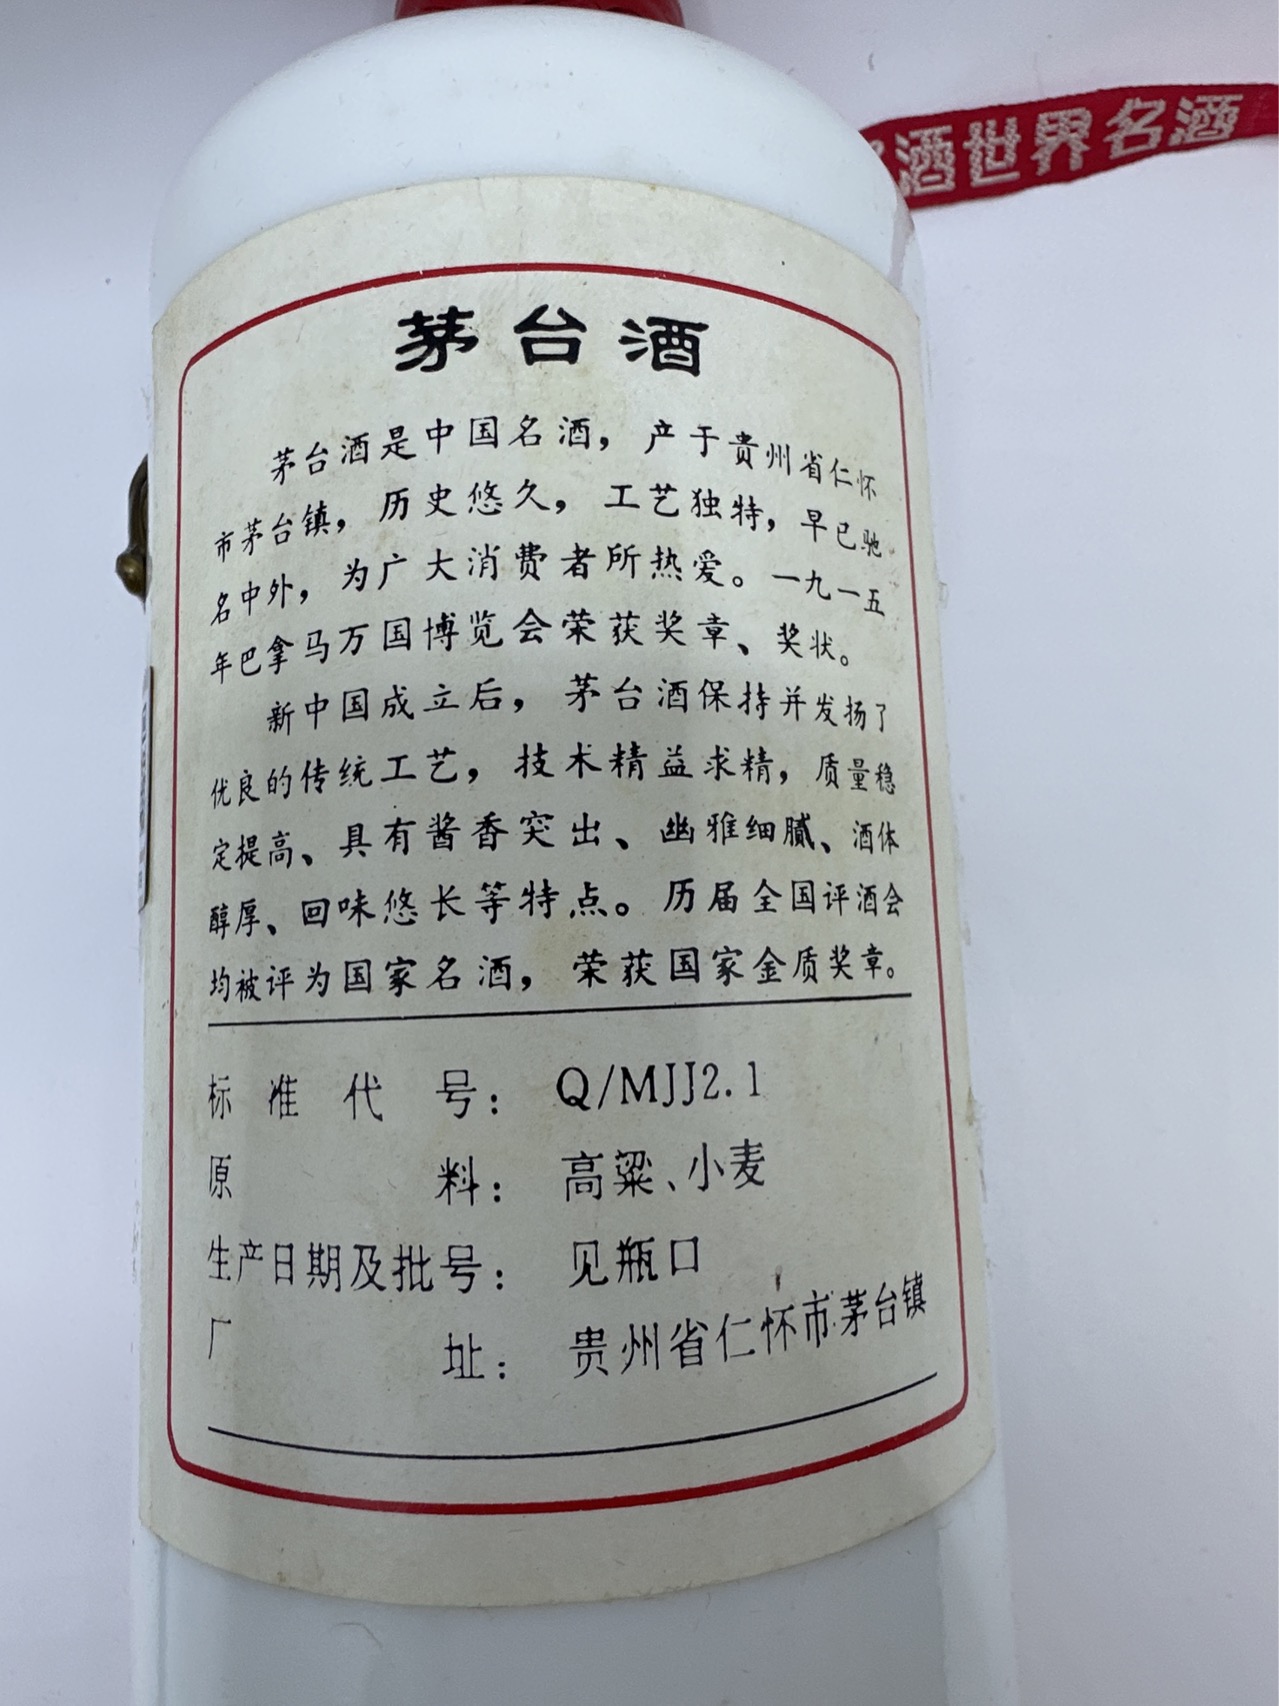 酒世界名酒
茅台酒
茅台酒是中国名酒，产于贵州省仁怀
市茅台镇，历史悠久，工艺独特，早已驰
名中外，为广大消费者所热爱。一九一五
年巴拿马万国博览会荣获奖章、奖状。
新中国成立后，茅台酒保持并发扬了
优良的传统工艺，技术精益求精，质量稳
定提高、具有酱香突出、幽雅细腻、酒体
醇厚、回味悠长等特点。历届全国评酒会
均被评为国家名酒，荣获国家金质奖章。
标准代号：Q/MJJ2.1
原料：高粱、小麦
生产日期及批号：见瓶口
厂址：贵州省仁怀市茅台镇